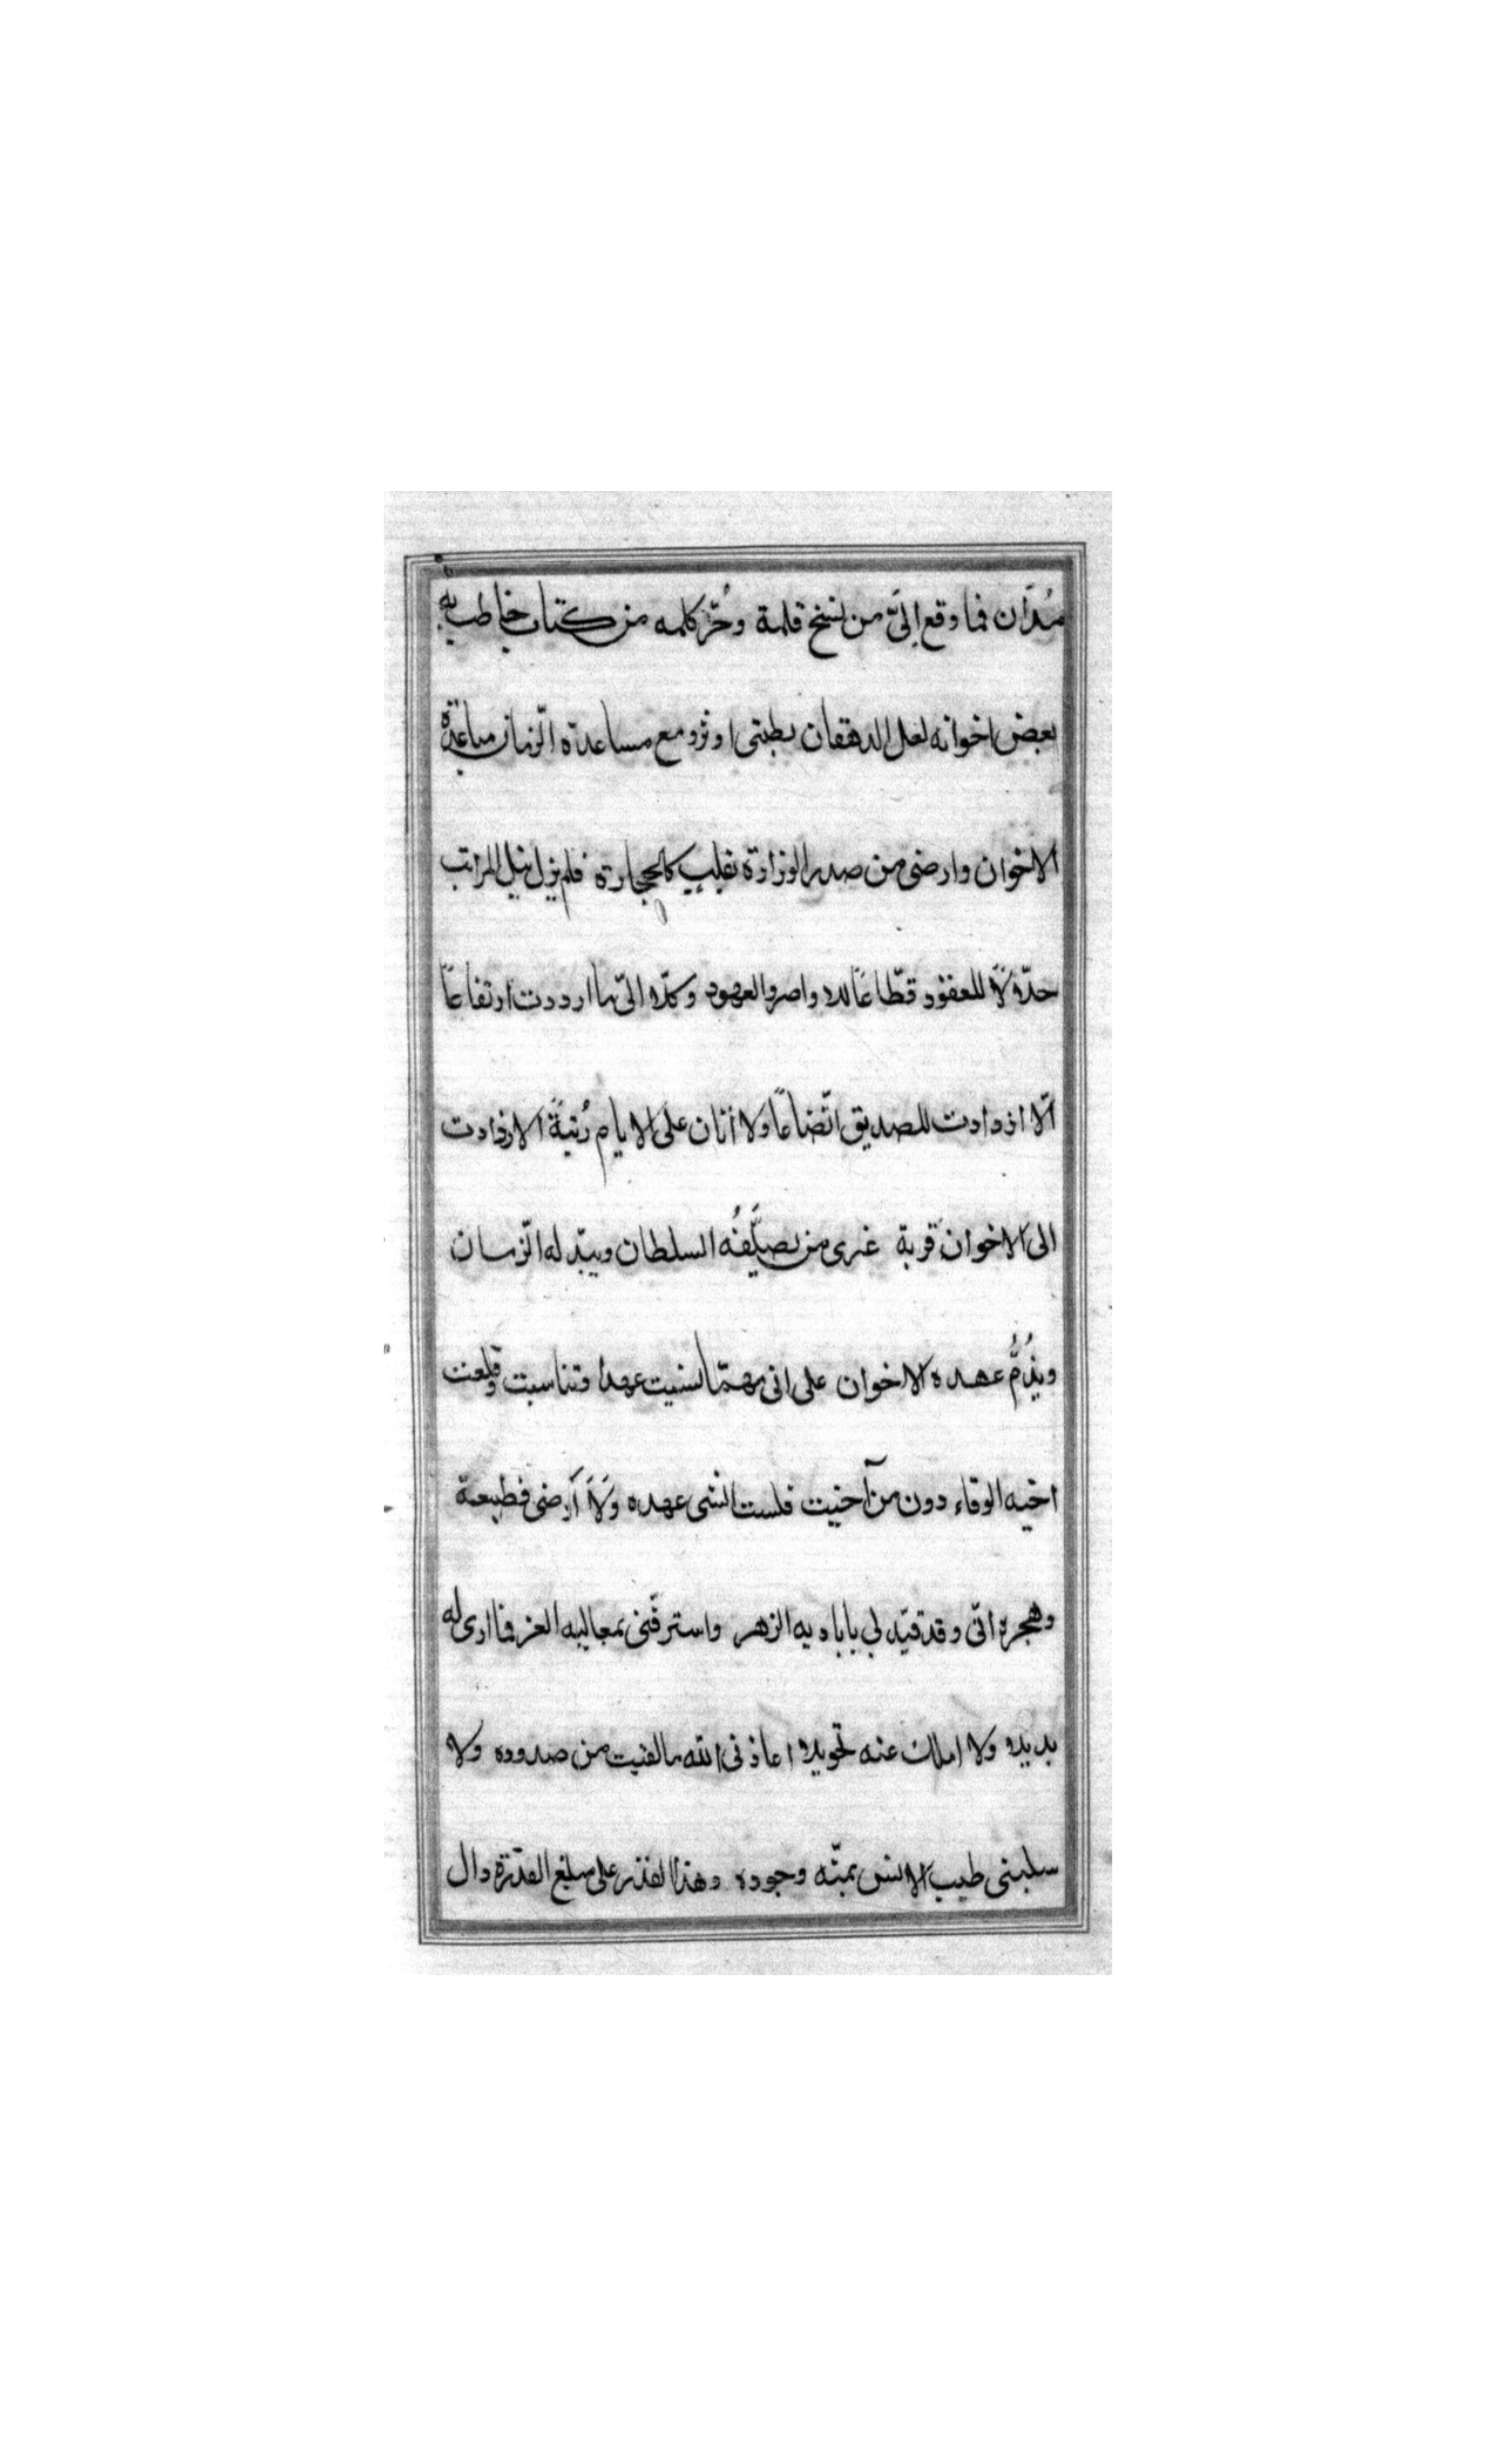 مُدَان فما وقع إلىّ من نسخ قلمة وحُرّ كلمه من كتاب خاطب به
بعض اخوانه لعل الدهقان يظنى او نزو مع مساعدة الزمان مباعدة
الاخوان وارضى من صدر الوزارة بقلب كالحجارة فلم يزل نيل المراتب
حدّه لًا للعقود قطّاعًا لده واصر والعهود وكلّا الىّ ما ارددت ارتفاعًا
الّا ازدادت للصديق اتّضاعًا ولا أنان على الايام رُتبةً الا زادت
الى الاخوان قربة غيرى من يصلّفُه السلطان ويبدّله الزمان
ويذُمُّ عهده الاخوان على انى مهما نسيت عهدا وتناسبت وقلعت
اخيه الوفاء دون من آخيت فلست انسى عهده ولَا أرضى قطيعة
وهجره انّى وقد قيّد لى باباديه الزهر واسترقّنى بمعاليه الغر فما ارى له
بديلا ولا املك عنه تحويلا اعاذنى الله ما لقيت من صدوده ولا
سلبنى طيب الانس بمنّه وجوده وهذا لقدر على مبلغ القدرة دال